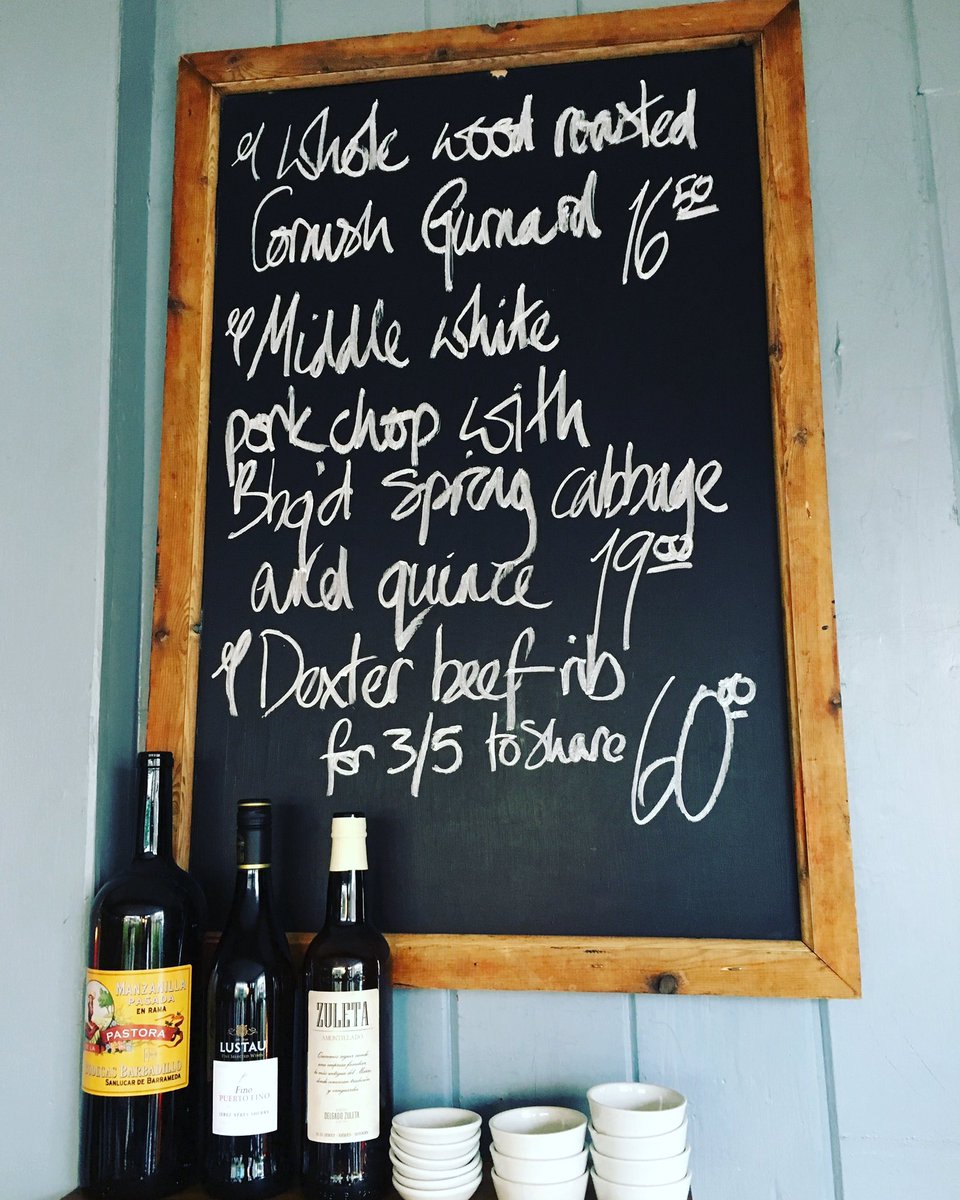 Whole wood roasted
Cornish Gurnard 16 50
Middle white
pork chop with
Bbq'd spring cabbage
and quince 19 00
Dexter beef rib
for 3/5 to share 60 00
MANZANILLA
PASADA
EN RAMA
PASTORA
BODEGAS BARBADILLO
SANLUCAR DE BARRAMEDA
LUSTAU
Fino
PUERTO FINO
ZULETA
AMONTILLADO
DELGADO ZULETA